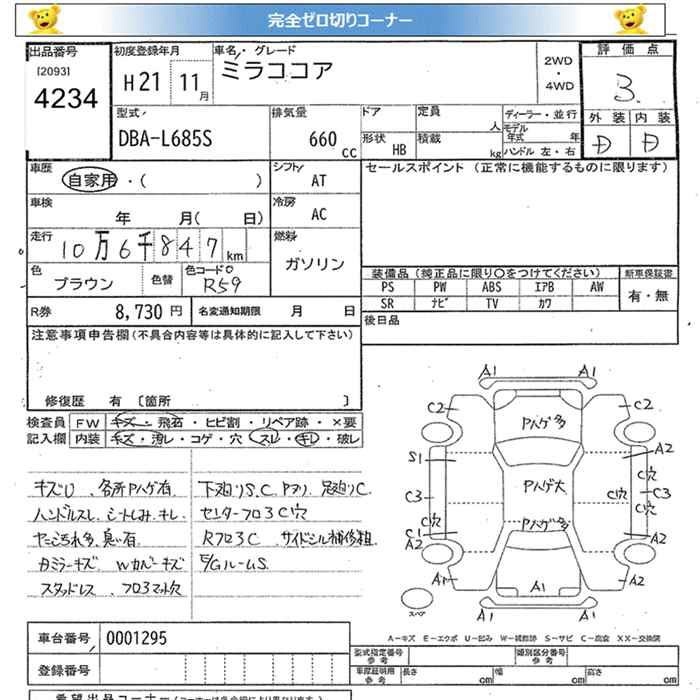 完全ゼロ切りコーナー
出品番号 初度登録年月 車名・グレード 評価点
[2093] H21 11月 ミラココア 2WD・4WD 3
4234
外装 内装
型式 排気量 ドア 定員 ディーラー・並行
DBA-L685S 660cc 人 モデル年式 年 D D
形状 HB 積載 kg ハンドル 左・右
車歴 シフト セールスポイント (正常に機能するものに限ります)
自家用・( ) AT
車検 冷房
年 月( 日) AC
走行 燃料
10万6千847km ガソリン
色 色替 色コードNo
ブラウン R59
装備品 (純正品に限り○をつけてください) 新車保証書
PS PW ABS エアB AW 有・無
SR ナビ TV カワ
R券 8,730円 名変通知期限 月 日
後日品
注意事項申告欄 (不具合内容等は具体的に記入して下さい)
修復歴 有 [箇所 ]
検査員 FW キズ・飛石・ヒビ割・リペア跡・×要
記入欄 内装 キズ・汚レ・コゲ・穴・スレ・キレ・破レ
キズU 各所Pハゲ有 下廻りS.C Pアリ 足廻りC
ハンドルスレ シートしみ キレ センターフロアC穴
ヤニ汚れ多 臭い有 RフロアC サイドシル補修粗
カメラーキズ Wカバーキズ E/GルームS
スタッドレス フロアマット欠
A1 A1
C2 C2
Pハゲ多
S1 A2
C穴
C3 Pハゲ大 C3
C穴 C穴
C1 Pハゲ多
A2 A2
A1 A1 A2
スペア
A1 A1
A-キズ E-エクボ U-凹み W-補修跡 S-サビ C-腐食 XX-交換済
車台番号 0001295
型式指定番号 参考 類別区分番号 参考
登録番号
車庫証明用 参考 長さ cm 幅 cm 高さ cm
希望出品コーナー